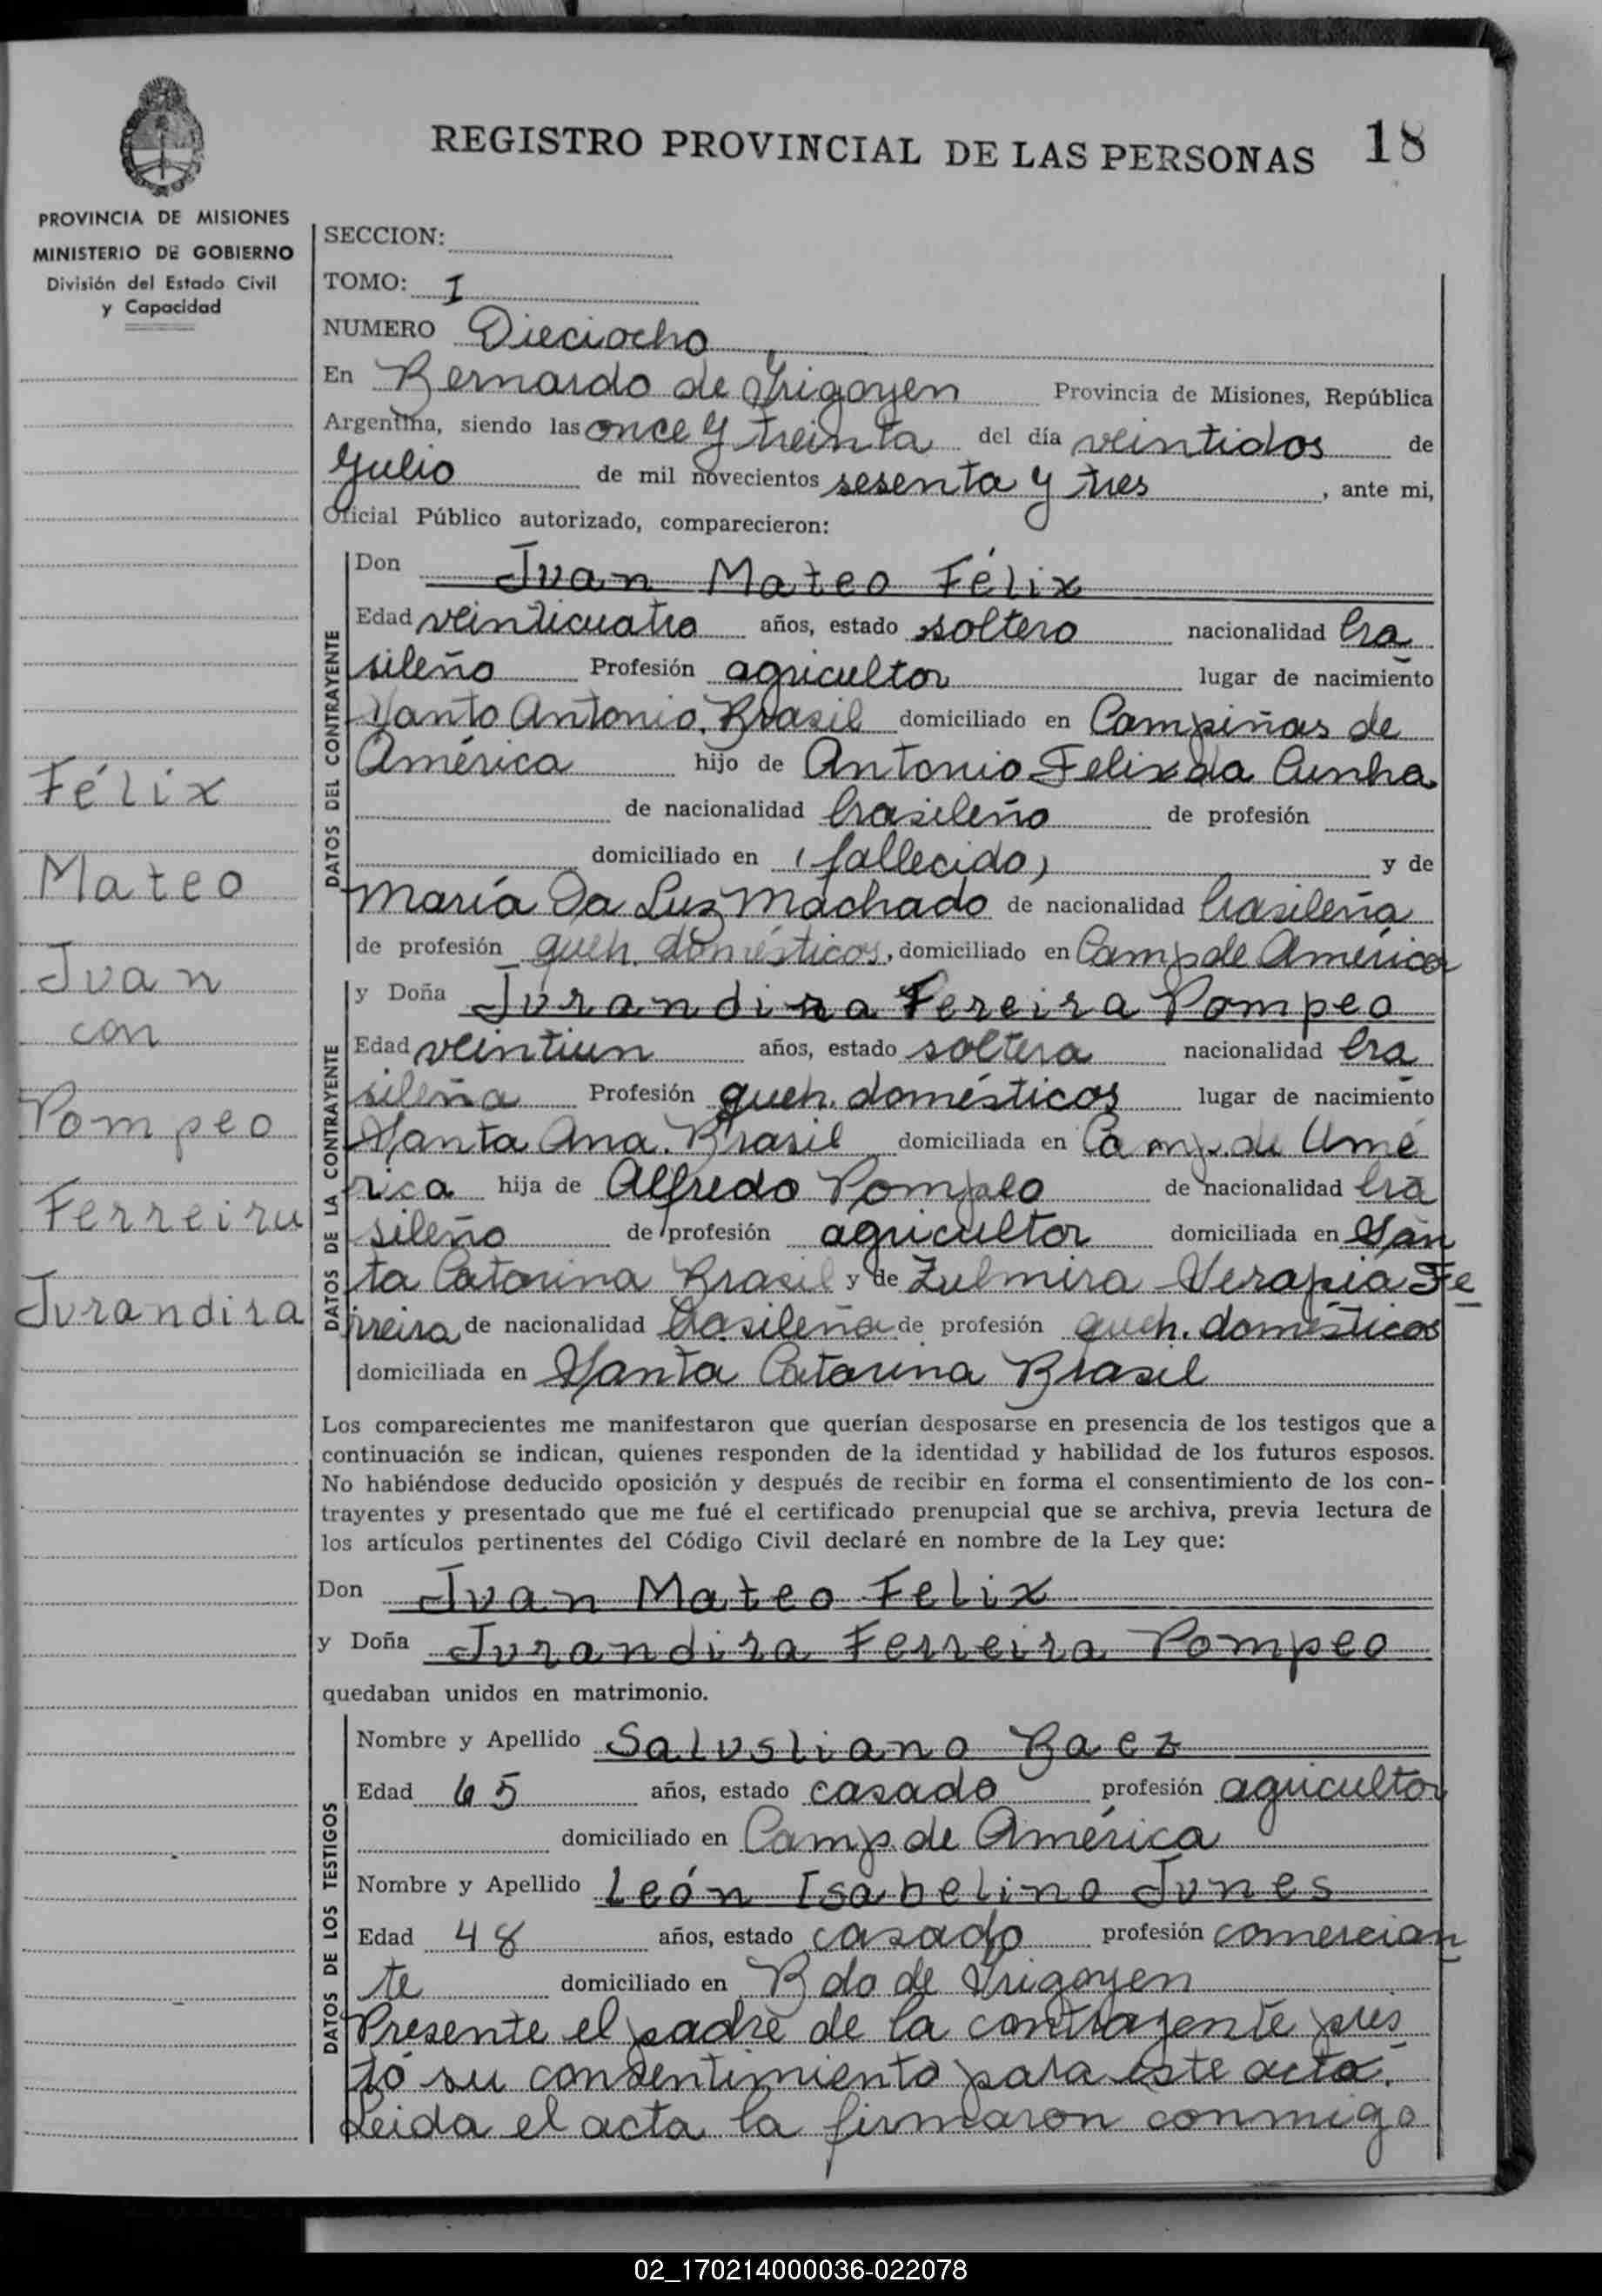 REGISTRO PROVINCIAL DE LAS PERSONAS 18
PROVINCIA DE MISIONES
MINISTERIO DE GOBIERNO
División del Estado Civil
y Capacidad
Félix
Mateo
Juan
con
Pompeo
Ferreira
Jurandira
SECCION:
TOMO: I
NUMERO Dieciocho
En Bernardo de Irigoyen Provincia de Misiones, República
Argentina, siendo las once y treinta del día veintidos de
Julio de mil novecientos sesenta y tres, ante mi,
Oficial Público autorizado, comparecieron:
DATOS DEL CONTRAYENTE
Don Juan Mateo Félix
Edad veinticuatro años, estado soltero nacionalidad bra
sileño Profesión agricultor lugar de nacimiento
Santo Antonio, Brasil domiciliado en Campiñas de
América hijo de Antonio Felix da Cunha
de nacionalidad brasileño de profesión
domiciliado en (fallecido) y de
María Da Luz Machado de nacionalidad brasileña
de profesión queh. domésticos, domiciliado en Camp de América
DATOS DE LA CONTRAYENTE
y Doña Jurandira Fereira Pompeo
Edad veintiun años, estado soltera nacionalidad bra
sileña Profesión queh. domésticos lugar de nacimiento
Santa Ana. Brasil domiciliada en Camp. de Amé
rica hija de Alfredo Pompeo de nacionalidad bra
sileño de profesión agricultor domiciliada en San
ta Catarina Brasil y de Zulmira Serapia Fe
rreira de nacionalidad brasileña de profesión queh. domésticos
domiciliada en Santa Catarina Brasil
Los comparecientes me manifestaron que querían desposarse en presencia de los testigos que a
continuación se indican, quienes responden de la identidad y habilidad de los futuros esposos.
No habiéndose deducido oposición y después de recibir en forma el consentimiento de los con-
trayentes y presentado que me fué el certificado prenupcial que se archiva, previa lectura de
los artículos pertinentes del Código Civil declaré en nombre de la Ley que:
Don Juan Mateo Felix
y Doña Jurandira Ferreira Pompeo
quedaban unidos en matrimonio.
DATOS DE LOS TESTIGOS
Nombre y Apellido Salustiano Baez
Edad 65 años, estado casado profesión agricultor
domiciliado en Camp. de América
Nombre y Apellido León Isabelino Junes
Edad 48 años, estado casado profesión comercian
te domiciliado en Bdo de Irigoyen
Presente el padre de la contrayente pres
tó su consentimiento para este acto.
Leida el acta la firmaron conmigo
02_170214000036-022078